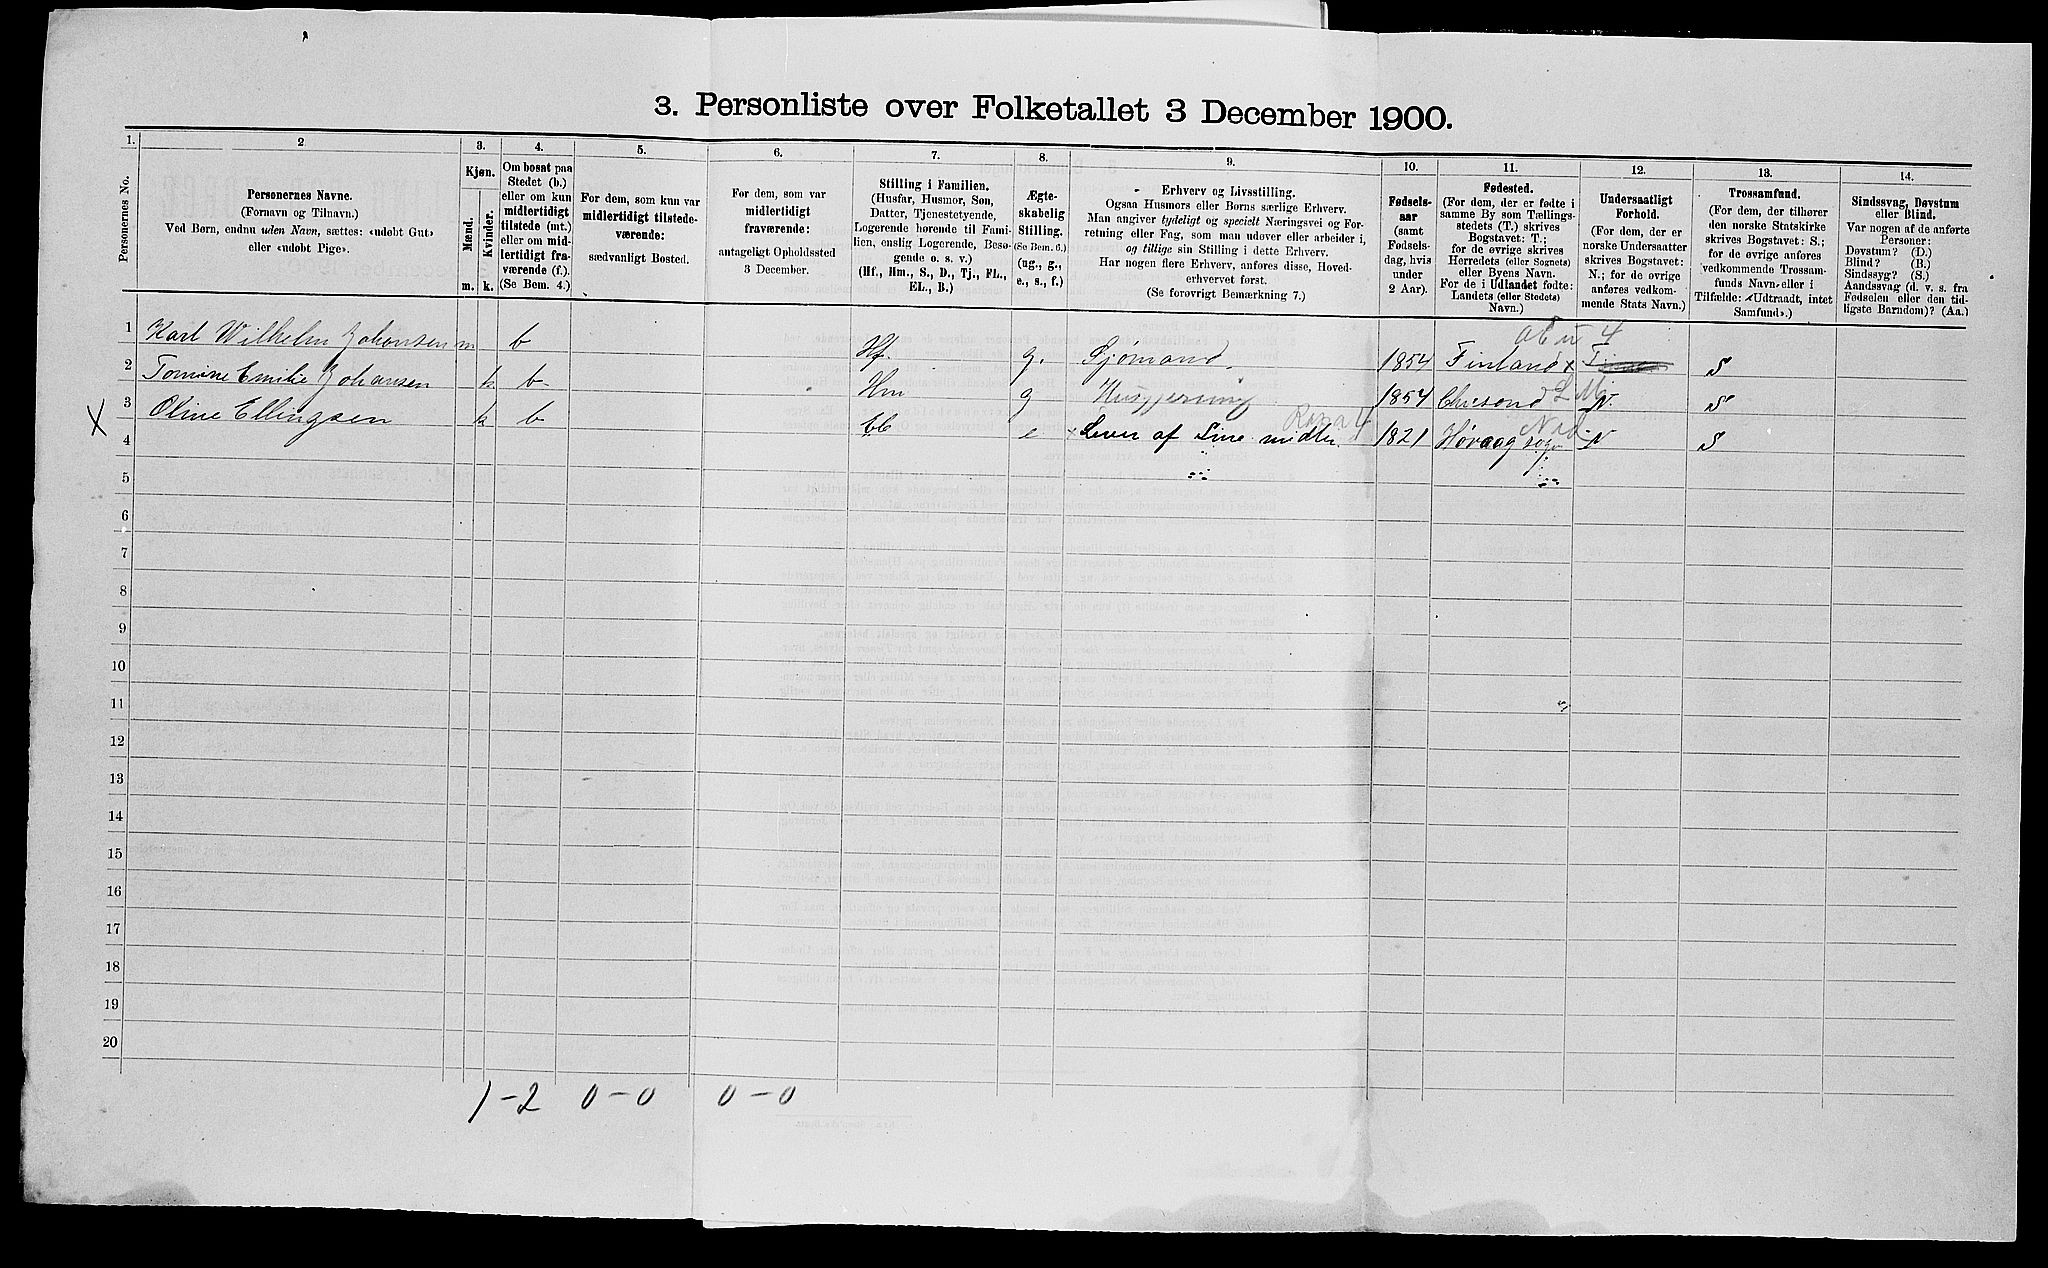 3. Personliste over Folketallet 3 December 1900.
1. 2 3. 4. 5. 6. 7. 8. 9. 10. 11. 12. 13. 14.
Personernes No.
Personernes Navne.
(Fornavn og Tilnavn.)
Ved Børn, endnu uden Navn, sættes: «udøbt Gut»
eller «udøbt Pige».
Kjøn.
Mænd.
Kvinder.
m. k.
Om bosat paa
Stedet (b.)
eller om kun
midlertidigt
tilstede (mt.)
eller om mid-
lertidigt fra-
værende (f.).
(Se Bem. 4.)
For dem, som kun var
midlertidigt tilstede-
værende:
sædvanligt Bosted.
For dem, som var
midlertidigt
fraværende:
antageligt Opholdssted
3 December.
Stilling i Familien.
(Husfar, Husmor, Søn,
Datter, Tjenestetyende,
Logerende hørende til Fami-
lien, enslig Logerende, Besø-
gende o. s. v.)
(Hf., Hm., S., D., Tj., FL.,
EL., B.)
Ægte-
skabelig
Stilling.
(Se Bem. 6.)
(ug., g.,
e., s., f.)
Erhverv og Livsstilling.
Ogsaa Husmors eller Børns særlige Erhverv.
Man angiver tydeligt og specielt Næringsvei og For-
retning eller Fag, som man udøver eller arbeider i,
og tillige sin Stilling i dette Erhverv.
Har nogen flere Erhverv, anføres disse, Hoved-
erhvervet først.
(Se forøvrigt Bemærkning 7.)
Fødsels-
aar
(samt
Fødsels-
dag, hvis
under
2 Aar).
Fødested.
(For dem, der er fødte i
samme By som Tællings-
stedets (T.) skrives
Bogstavet: T.;
for de øvrige skrives
Herredets (eller Sognets)
eller Byens Navn.
For de i Udlandet fødte:
Landets (eller Stedets)
Navn.)
Undersaatligt
Forhold.
(For dem, der er
norske Undersaatter
skrives Bogstavet:
N.; for de øvrige
anføres vedkom-
mende Stats Navn.)
Trossamfund.
(For dem, der tilhører
den norske Statskirke
skrives Bogstavet: S.;
for de øvrige anføres
vedkommende Trossam-
funds Navn eller i
Tilfælde: «Udtraadt, intet
Samfund».)
Sindssvag, Døvstum
eller Blind.
Var nogen af de anførte
Personer:
Døvstum? (D.)
Blind? (B.)
Sindssyg? (S.)
Aandssvag (d. v. s. fra
Fødselen eller den tid-
ligste Barndom)? (Aa.)
1 Karl Wilhelm Johansen m b Hf. g. Sjømand. 1854 Finland x S
2 Tomine Emilie Johansen k b Hm g Husgjerning 1854 Chrsand N. S
X 3 Oline Ellingsen k b e x Lever af Sine midler 1821 Høvaag sogn N S
4
5
6
7
8
9
10
11
12
13
14
15
16
17
18
19
20
1-2 0-0 0-0